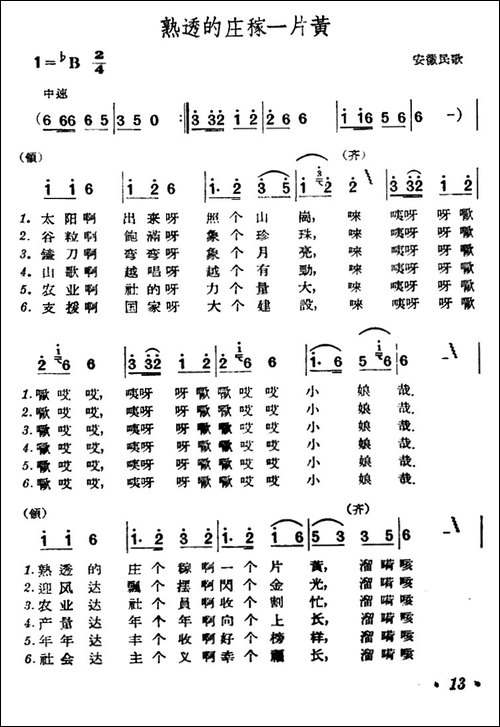 熟透的庄稼一片黃
1=♭B 2/4
安徽民歌
中速
(6 66 6 5 | 3 5 0 :‖: 3 32 1 2 | 3 32 1 2 | 1 16 5 6 | 6 -) |
(領) (齐)
1 1 6 | 1 1 2 | 1· 2 3 5 | 1 2 | 3 32 1 2
1. 太阳啊 出来呀 照个山崗, 唻 咦呀 呀噷
2. 谷粒啊 飽滿呀 象个珍珠, 唻 咦呀 呀噷
3. 鐮刀啊 弯弯呀 象个月亮, 唻 咦呀 呀噷
4. 山歌啊 越唱呀 越个有勁, 唻 咦呀 呀噷
5. 农业啊 社的呀 力个量大, 唻 咦呀 呀噷
6. 支援啊 国家呀 大个建設, 唻 咦呀 呀噷
2 6 6 | 3 32 1 2 | 2 6 6 | 1· 6 | 5 6 | 6
1. 噷哎哎, 咦呀 呀噷噷哎哎 小 娘 哉.
2. 噷哎哎, 咦呀 呀噷噷哎哎 小 娘 哉.
3. 噷哎哎, 咦呀 呀噷噷哎哎 小 娘 哉.
4. 噷哎哎, 咦呀 呀噷噷哎哎 小 娘 哉.
5. 噷哎哎, 咦呀 呀噷噷哎哎 小 娘 哉.
6. 噷哎哎, 咦呀 呀噷噷哎哎 小 娘 哉.
(領) (齐)
1 1 6 | 1· 2 3 2 | 1· 2 1 6 | 5 3 3 5 | 6
1. 熟透的 庄个稼啊一个片 黃, 溜嗬嗨
2. 迎风达 飄个摆啊閃个金 光, 溜嗬嗨
3. 农业达 社个員啊收个割 忙, 溜嗬嗨
4. 产量达 年个年啊向个上 长, 溜嗬嗨
5. 年年达 丰个收啊好个榜 样, 溜嗬嗨
6. 社会达 主个义啊幸个 长, 溜嗬嗨
· 13 ·